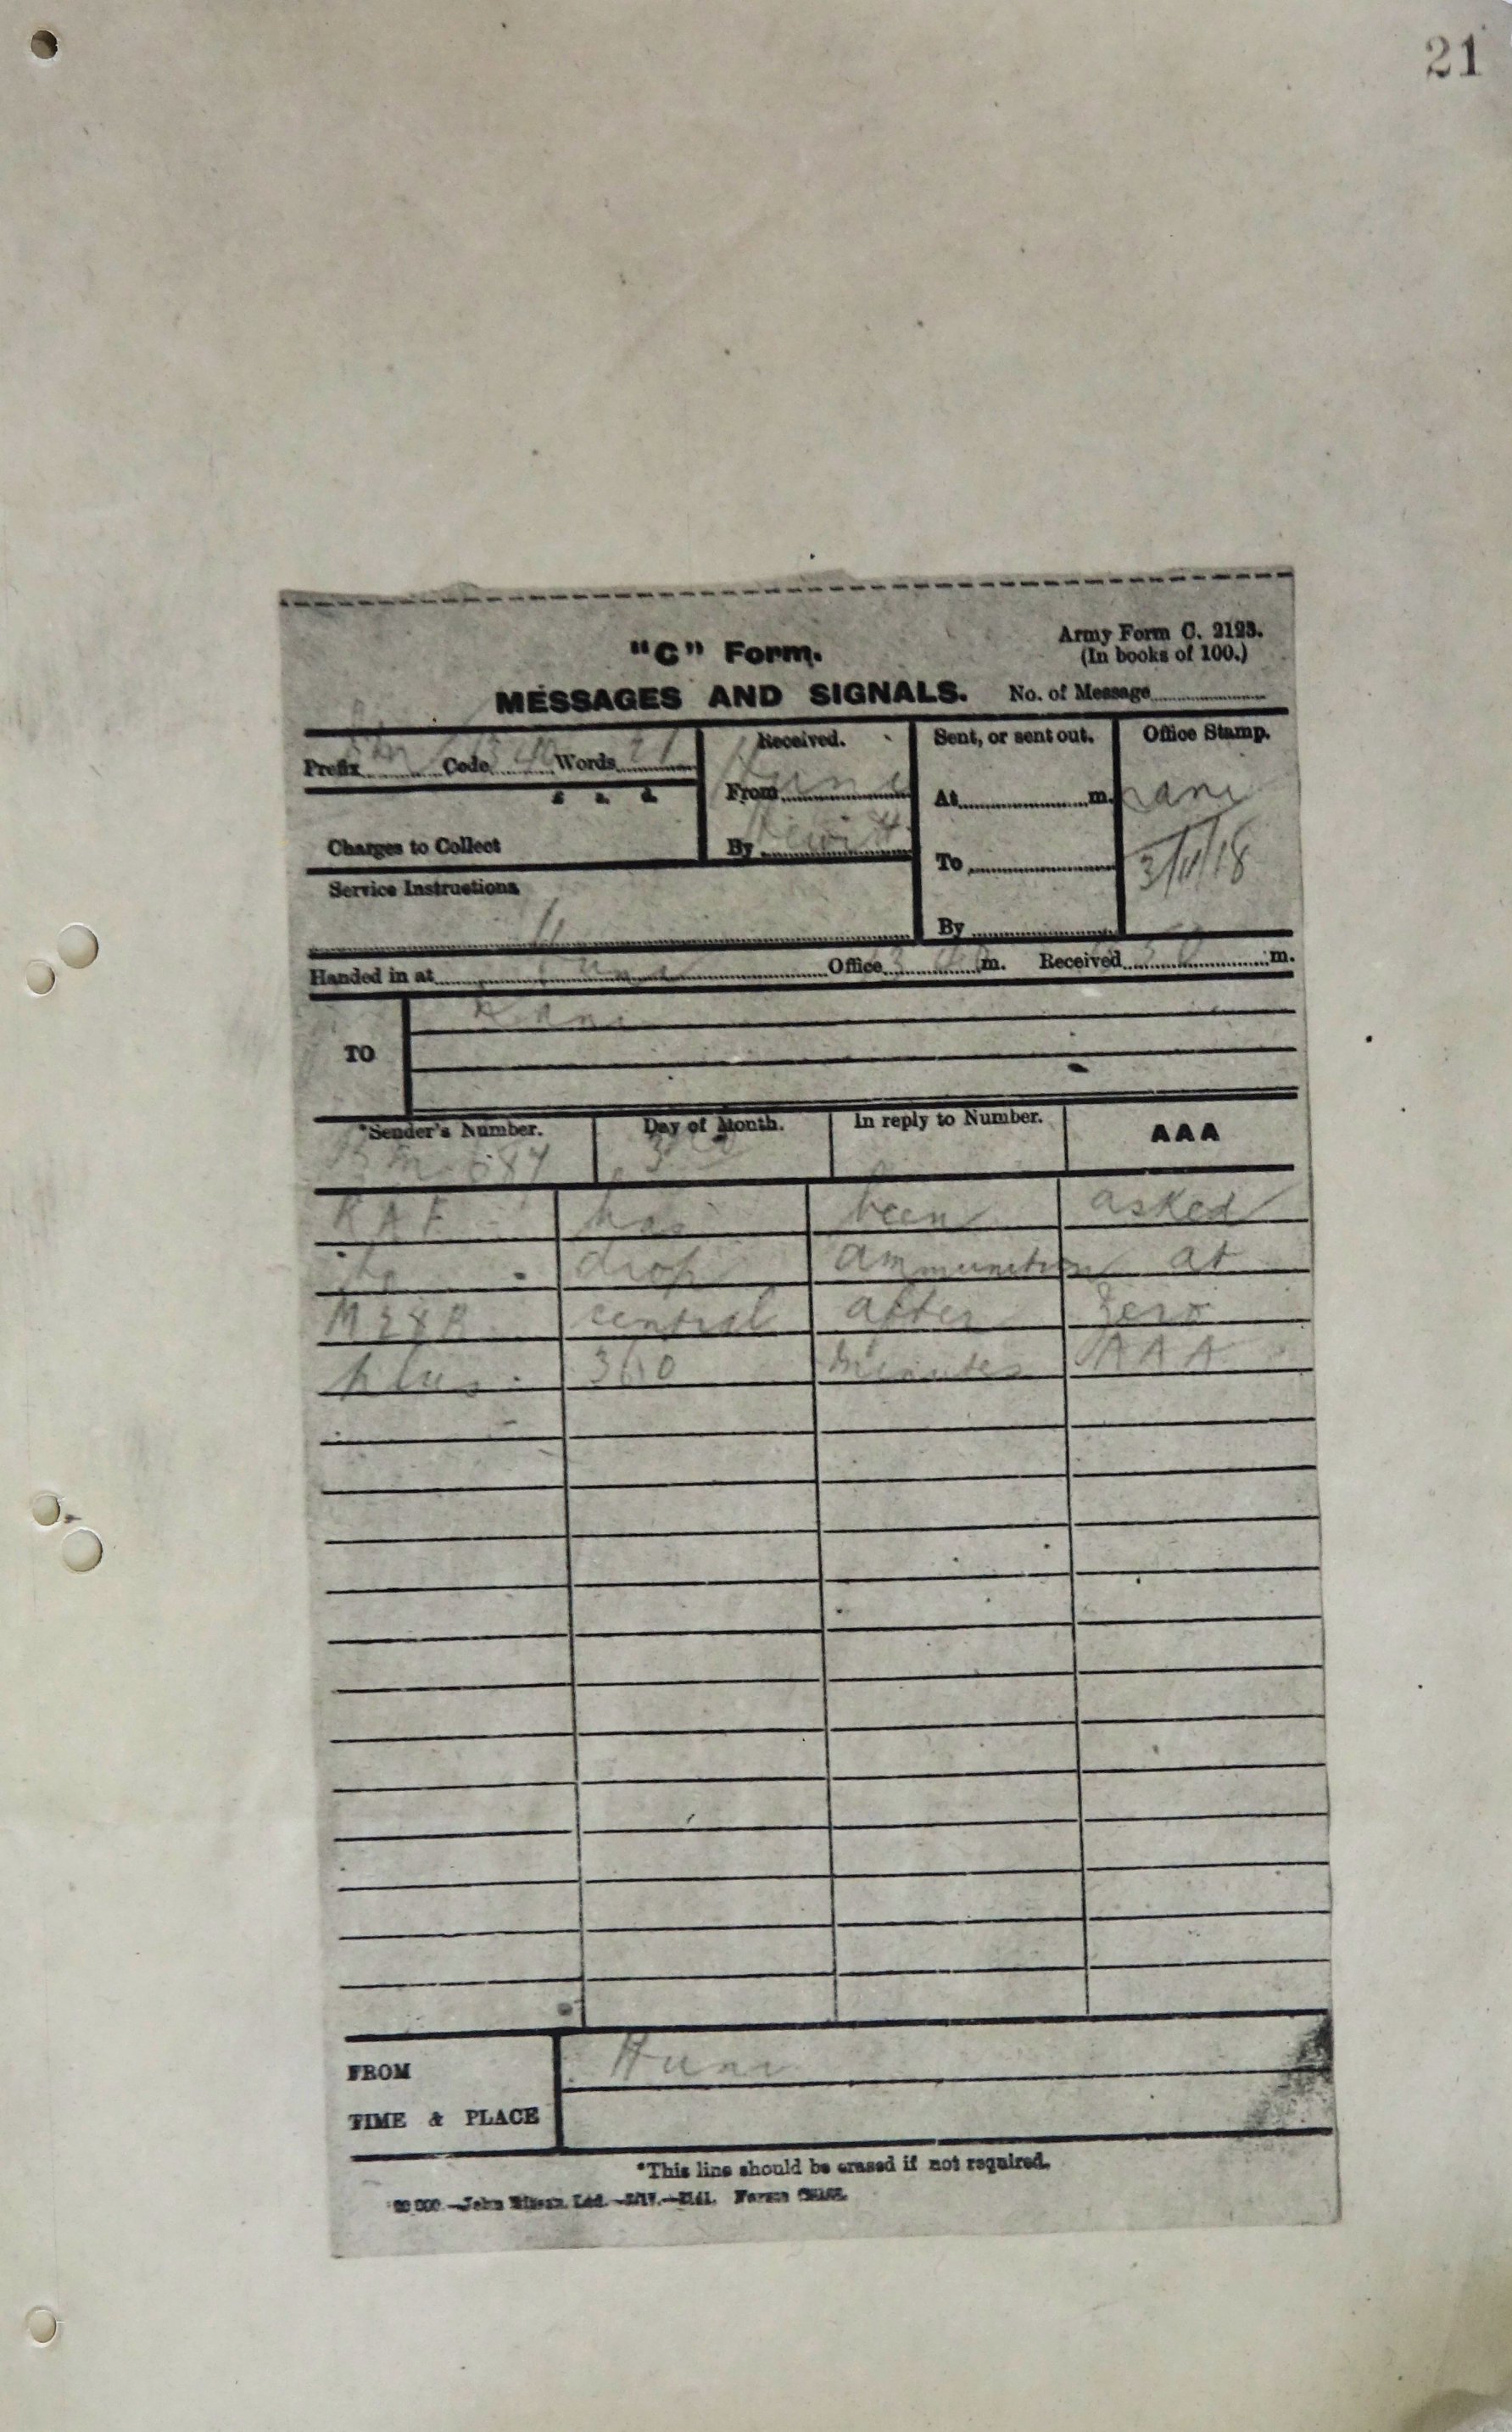 21
"C" Form.
Army Form C. 2123.
(In books of 100.)
MESSAGES AND SIGNALS. No. of Message
Prefix Code Words 21
£ s. d.
Charges to Collect
Service Instructions
Received.
From Huni
By Hewitt
Sent, or sent out.
At m.
To
By
Office Stamp.
3/11/18
Handed in at Huni Office m. Received m.
TO Rani
*Sender's Number. Day of Month. In reply to Number. AAA
BM 687 3rd
RAF has been asked
to drop ammunition at
central after Zero
plus 360 minutes AAA
FROM Huni
TIME & PLACE
*This line should be erased if not required.